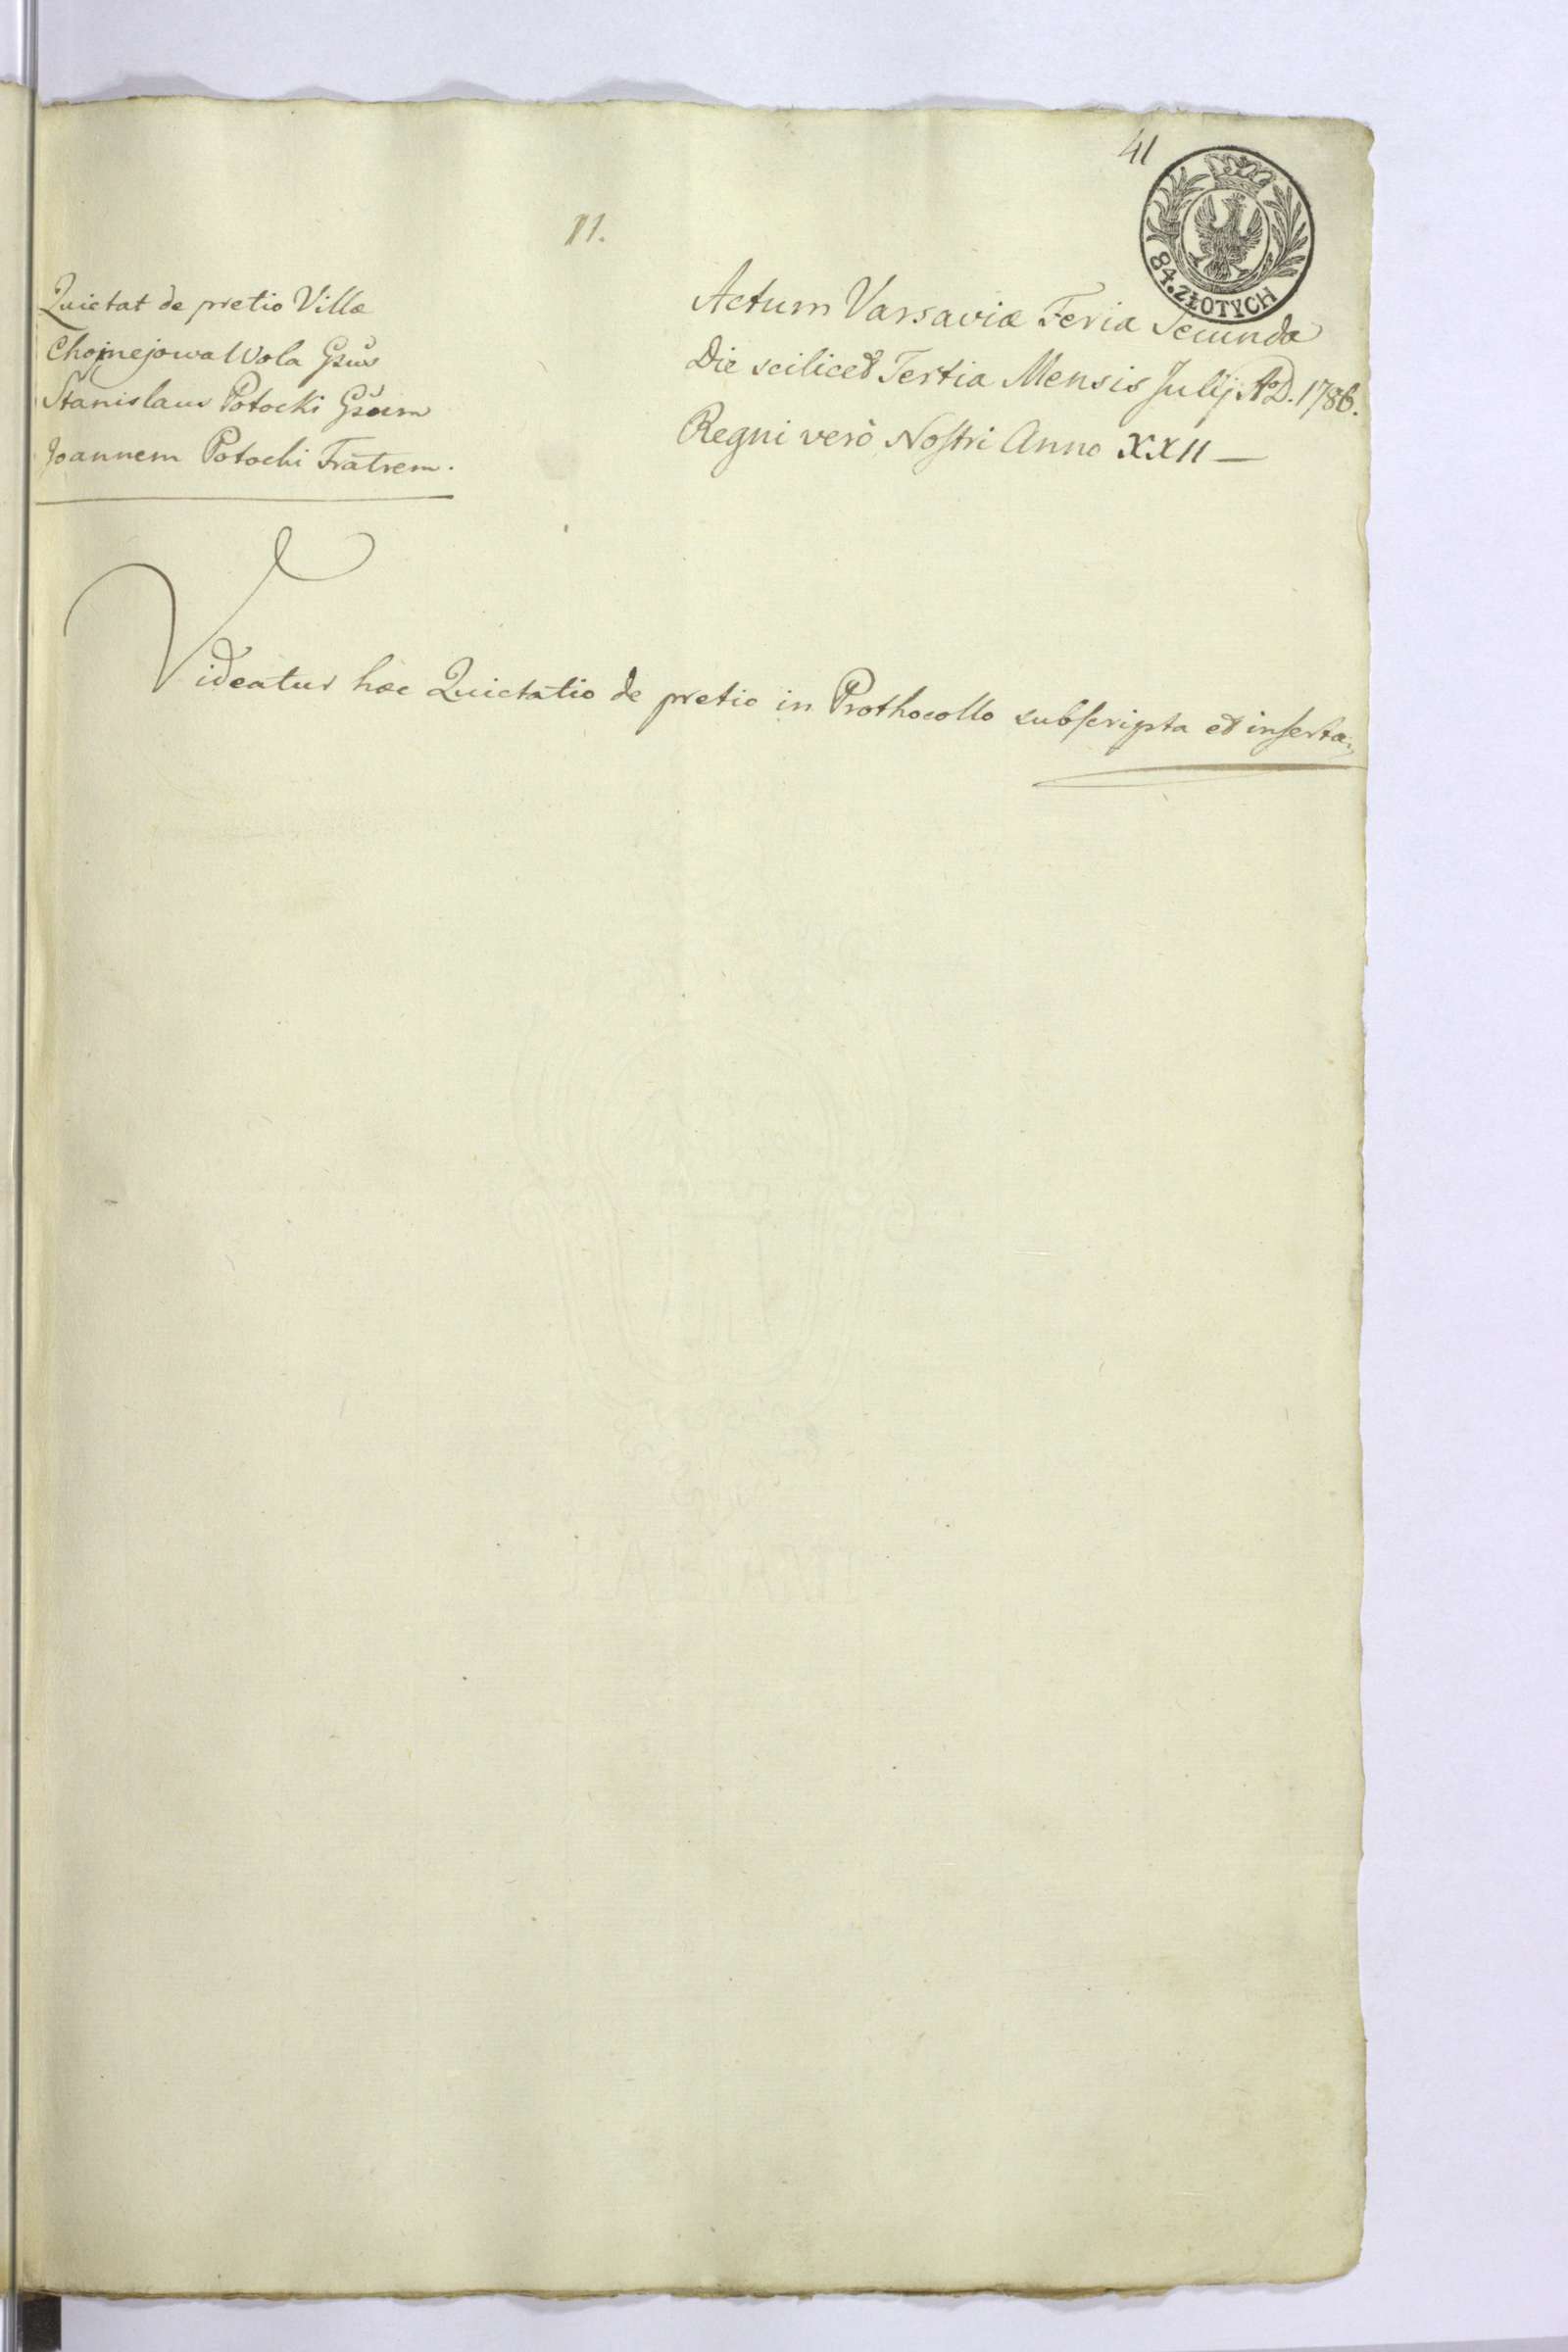 41
84. ZŁOTYCH
11.
Quietat de pretio Villæ
Chojnejowa Wola Gsus
Stanislaus Potocki Gsum
Joannem Potocki Fratrem.
Actum Varsaviæ Feria Secunda
Die scilicet Tertia Mensis Julij A.D. 1786.
Regni verò Nostri Anno XXII —
Videatur hæc Quietatio de pretio in Prothocollo subscripta et inserta.